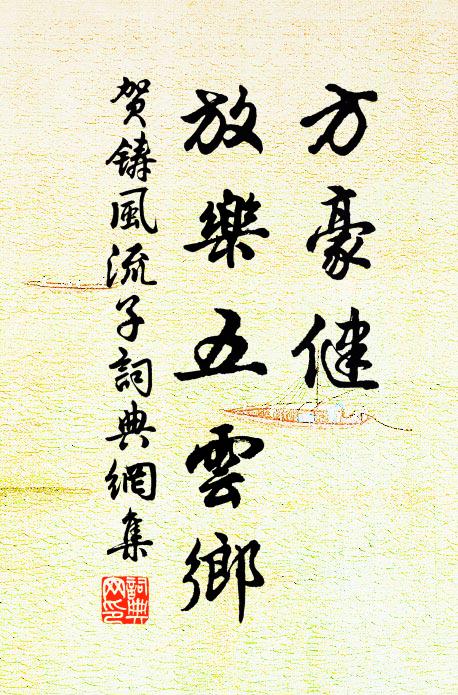 方豪健
放樂五雲鄉
賀鑄風流子詞典網集
詞典
网印